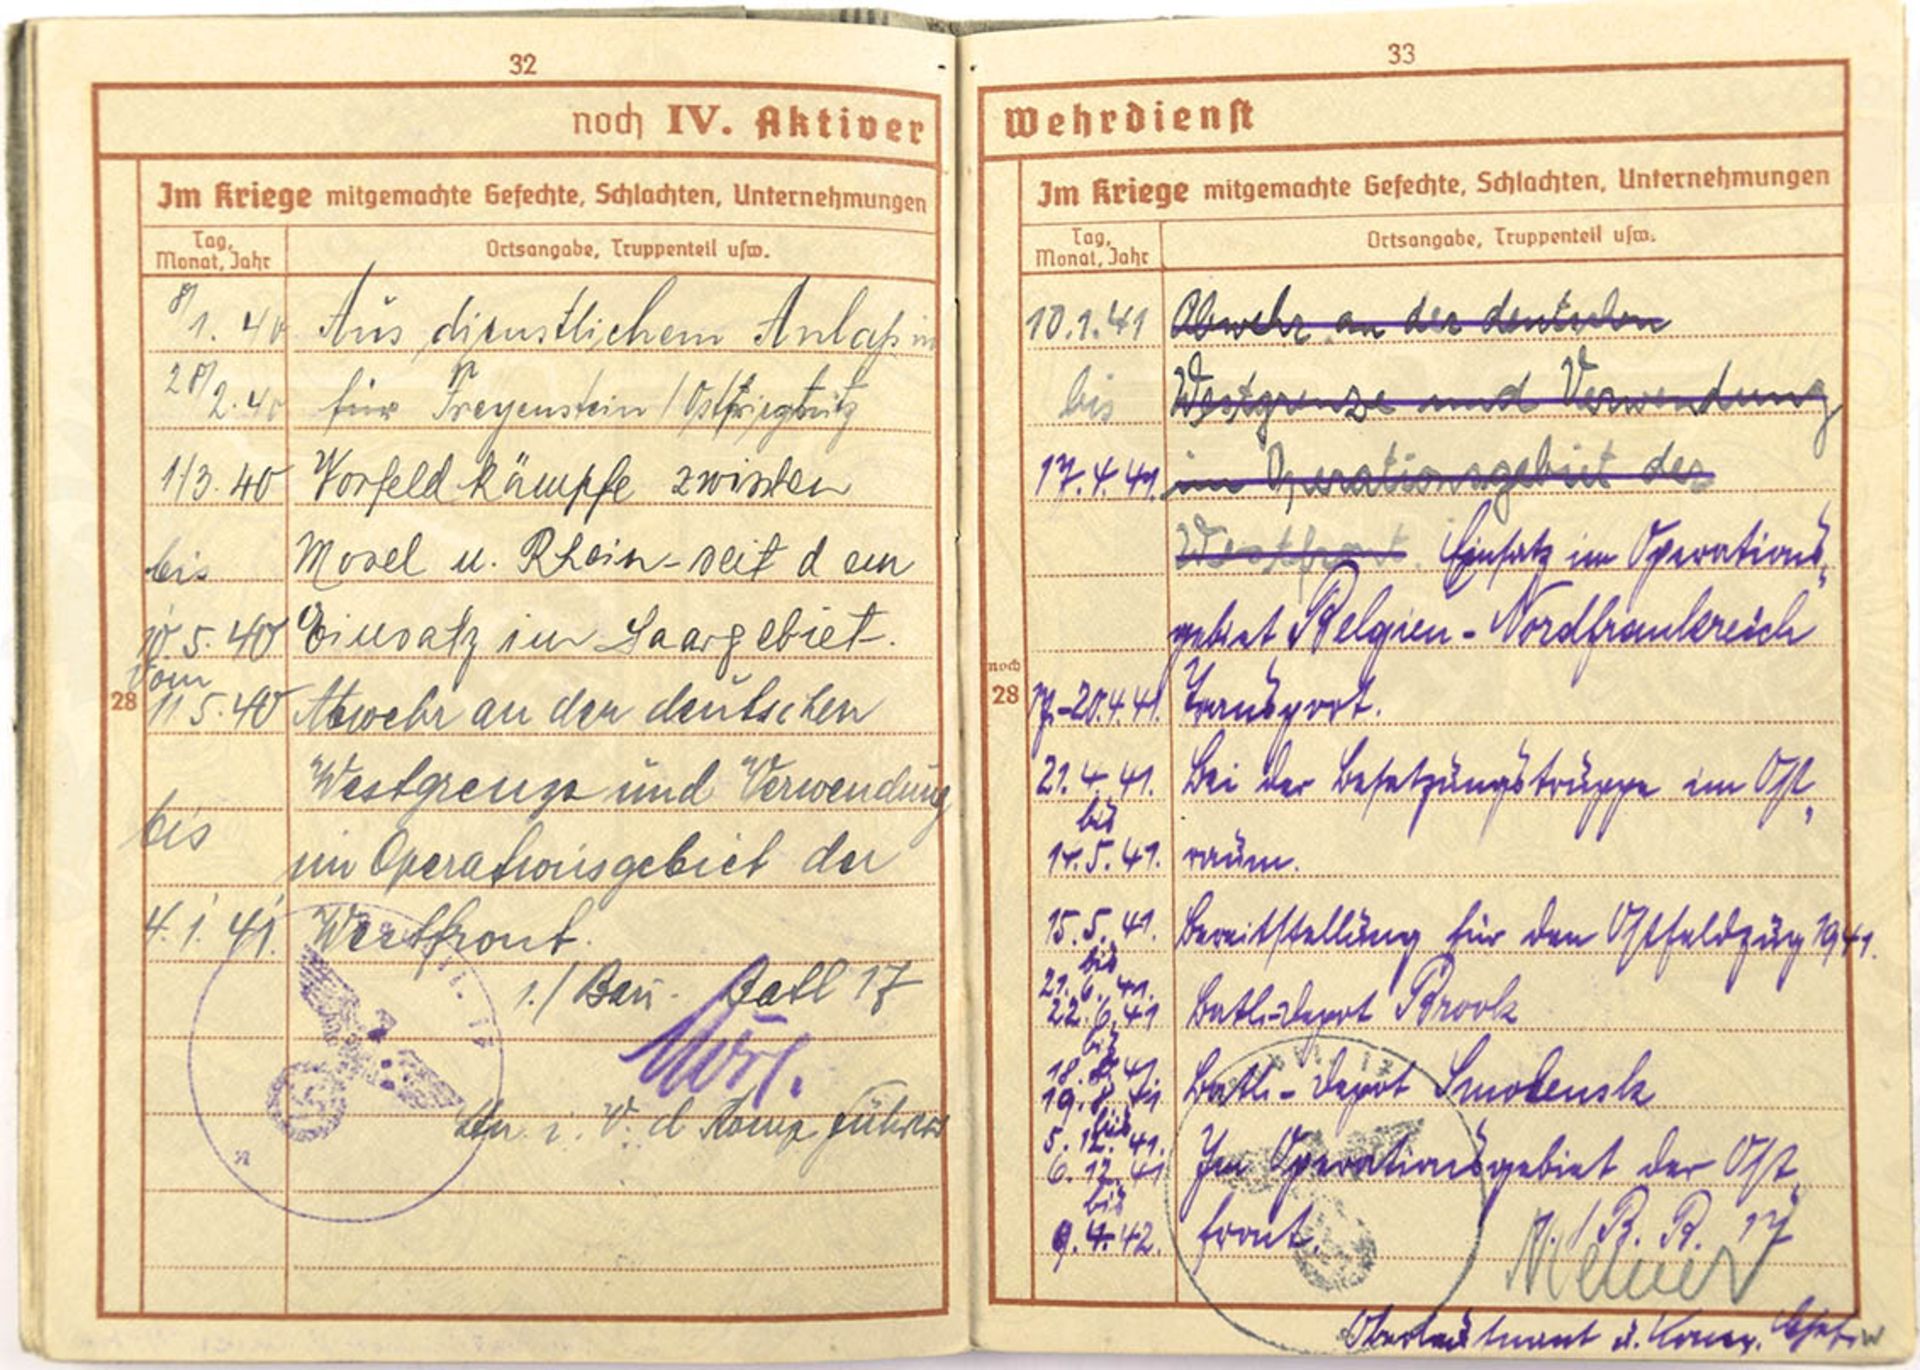 32
noch IV. Aktiver
Im Kriege mitgemachte Gefechte, Schlachten, Unternehmungen
Tag, Monat, Jahr
Ortsangabe, Truppenteil usw.
8/1. 40 Aus dienstlichem Anlaß in
28/2. 40 für Freyenstein /
1/3. 40 Vorfeldkämpfe zwischen
bis Mosel u. Rhein - seit dem
10. 5. 40 Einsatz im Saargebiet.
28
vom
11 5. 40 Abwehr an der deutschen
Westgrenze und Verwendung
bis im Operationsgebiet der
4. 1. 41. Westfront.
1./ Bau-Batl 17
Ltn. i. V. d Komp Führers
33
Wehrdienst
Im Kriege mitgemachte Gefechte, Schlachten, Unternehmungen
Tag, Monat, Jahr
Ortsangabe, Truppenteil usw.
10.1.41 Abwehr an der deutschen
bis Westgrenze und Verwendung
17.4.41. im Operationsgebiet der
Westfront. Einsatz im Operations-
gebiet Belgien - Nordfrankreich
noch 28
17.-20.4.41. Transport.
21.4.41. Bei der Besetzungstruppe im Ost-
bis
14.5.41. raum.
15.5.41. Bereitstellung für den Ostfeldzug 1941.
bis
21.6.41.
22.6.41 Batls-Depot
bis
18.8.41
19.8.41 Batls-Depot Smolensk
bis
5.12.41.
6.12.41 Im Operationsgebiet der Ost-
bis
9.4.42. front.
1./B. B. 17
Oberleutnant u. Komp. Chef